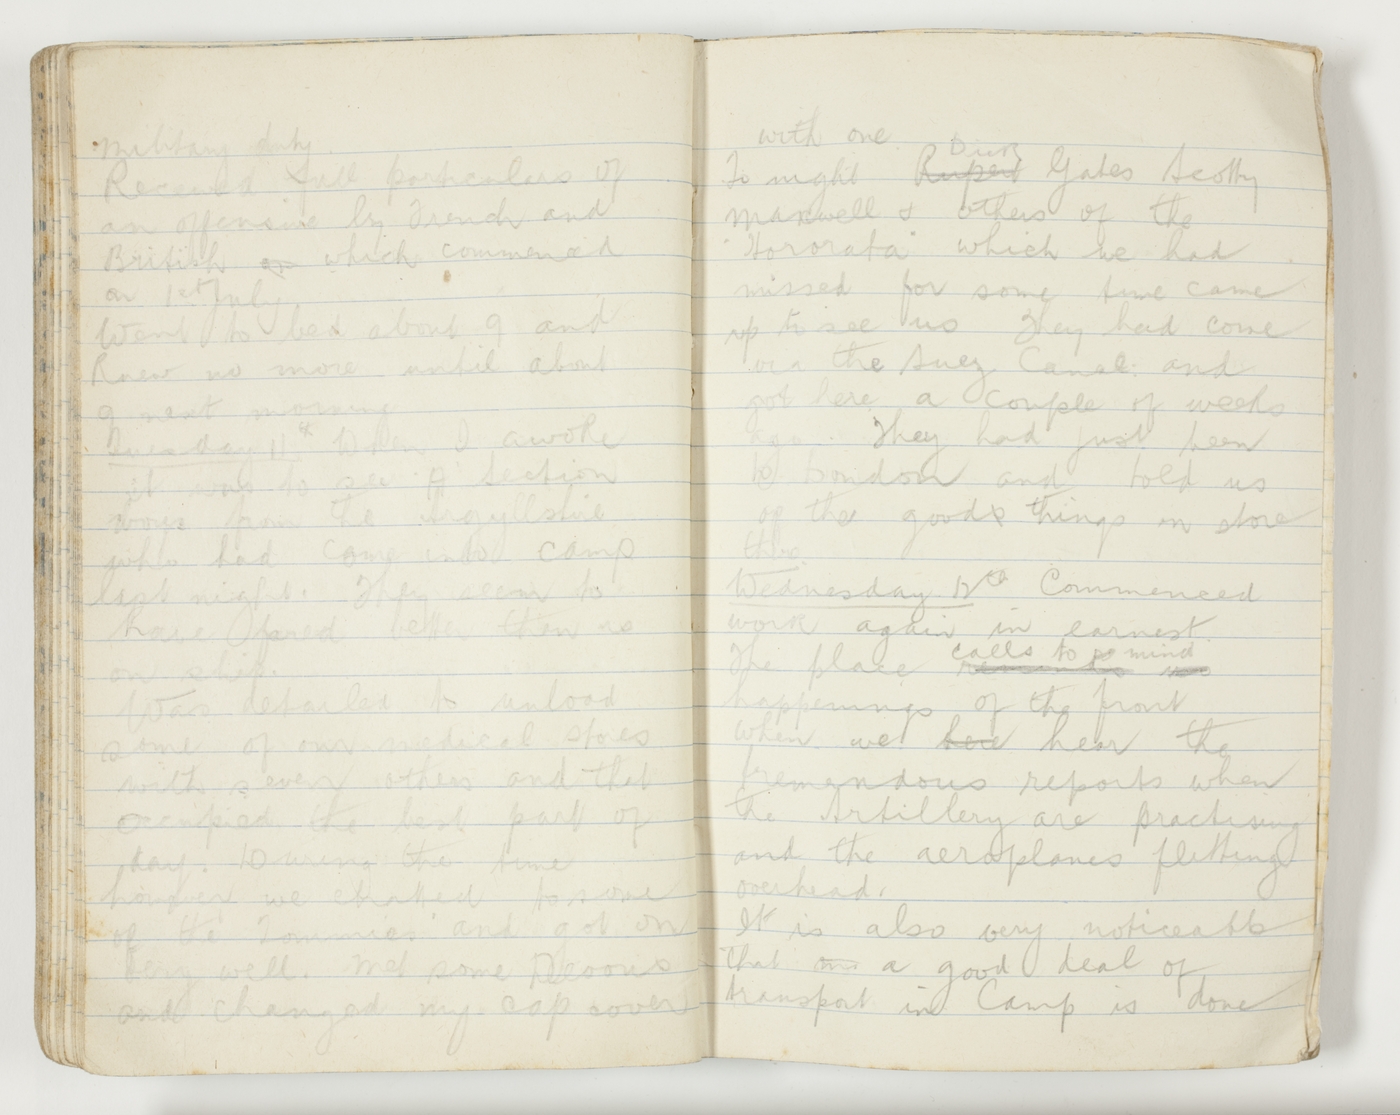 military duty.
Received full particulars of
an offensive by French and
British on which commenced
on 1st July.
Went to bed about 9 and
Knew no more until about
9 next morning
Tuesday 11th When I awoke
it was to see A Section
boys from the Argyllshire
who had come into camp
last night. They seem to
have fared better than us
on ship.
Was detailed to unload
some of our medical stores
with seven others and that
occupied the best part of
day. During the time
however we chatted to some
of the Tommies and got on
very well. Met some Devons
and changed my cap cover
with one.
To night Rupert Dick Gates Scotty
Maxwell & others of the
"Hororata" which we had
missed for some time came
up to see us They had come
via the Suez Canal and
got here a couple of weeks
ago. They had just been
to London and told us
of the goods things in store
there
Wednesday 12th Commenced
work again in earnest.
The place reminds us calls to mind
happenings of the front
when we here hear the
tremendous reports when
the Artillery are practising
and the aeroplanes flitting
overhead.
It is also very noticeable
that a good deal of
transport in Camp is done